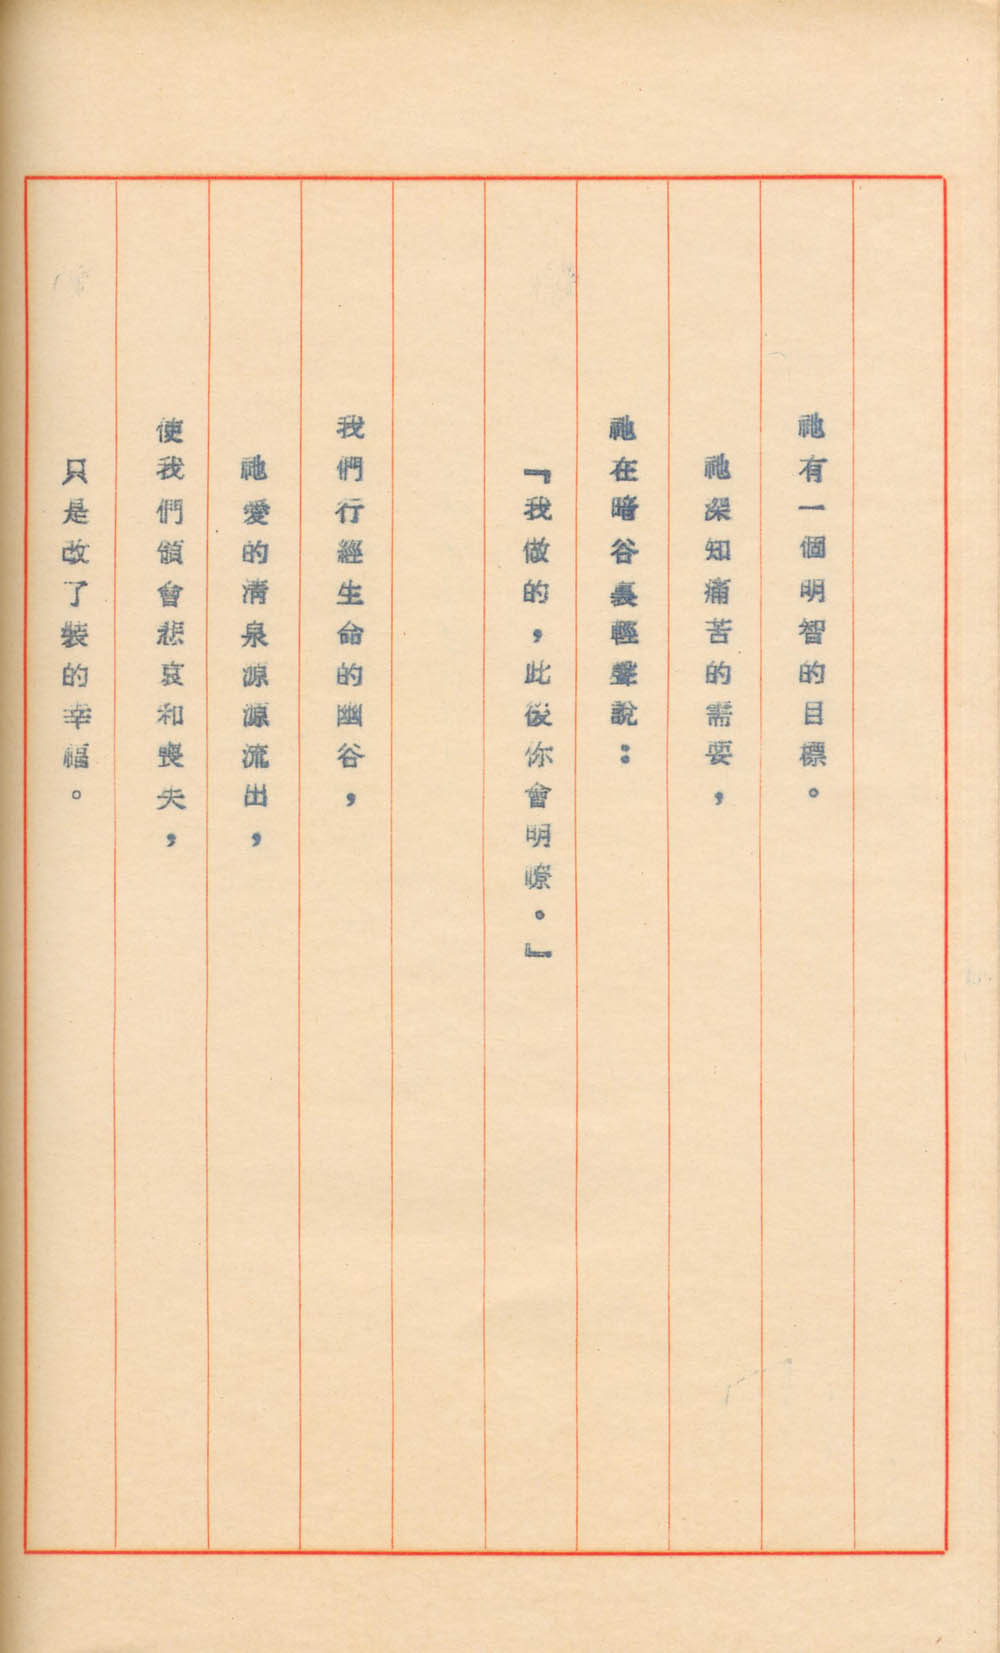 祂有一個明智的目標。
祂深知痛苦的需要，
祂在暗谷裏輕聲說：
『我做的，此後你會明瞭。』
我們行經生命的幽谷，
祂愛的清泉源源流出，
使我們領會悲哀和喪失，
只是改了裝的幸福。